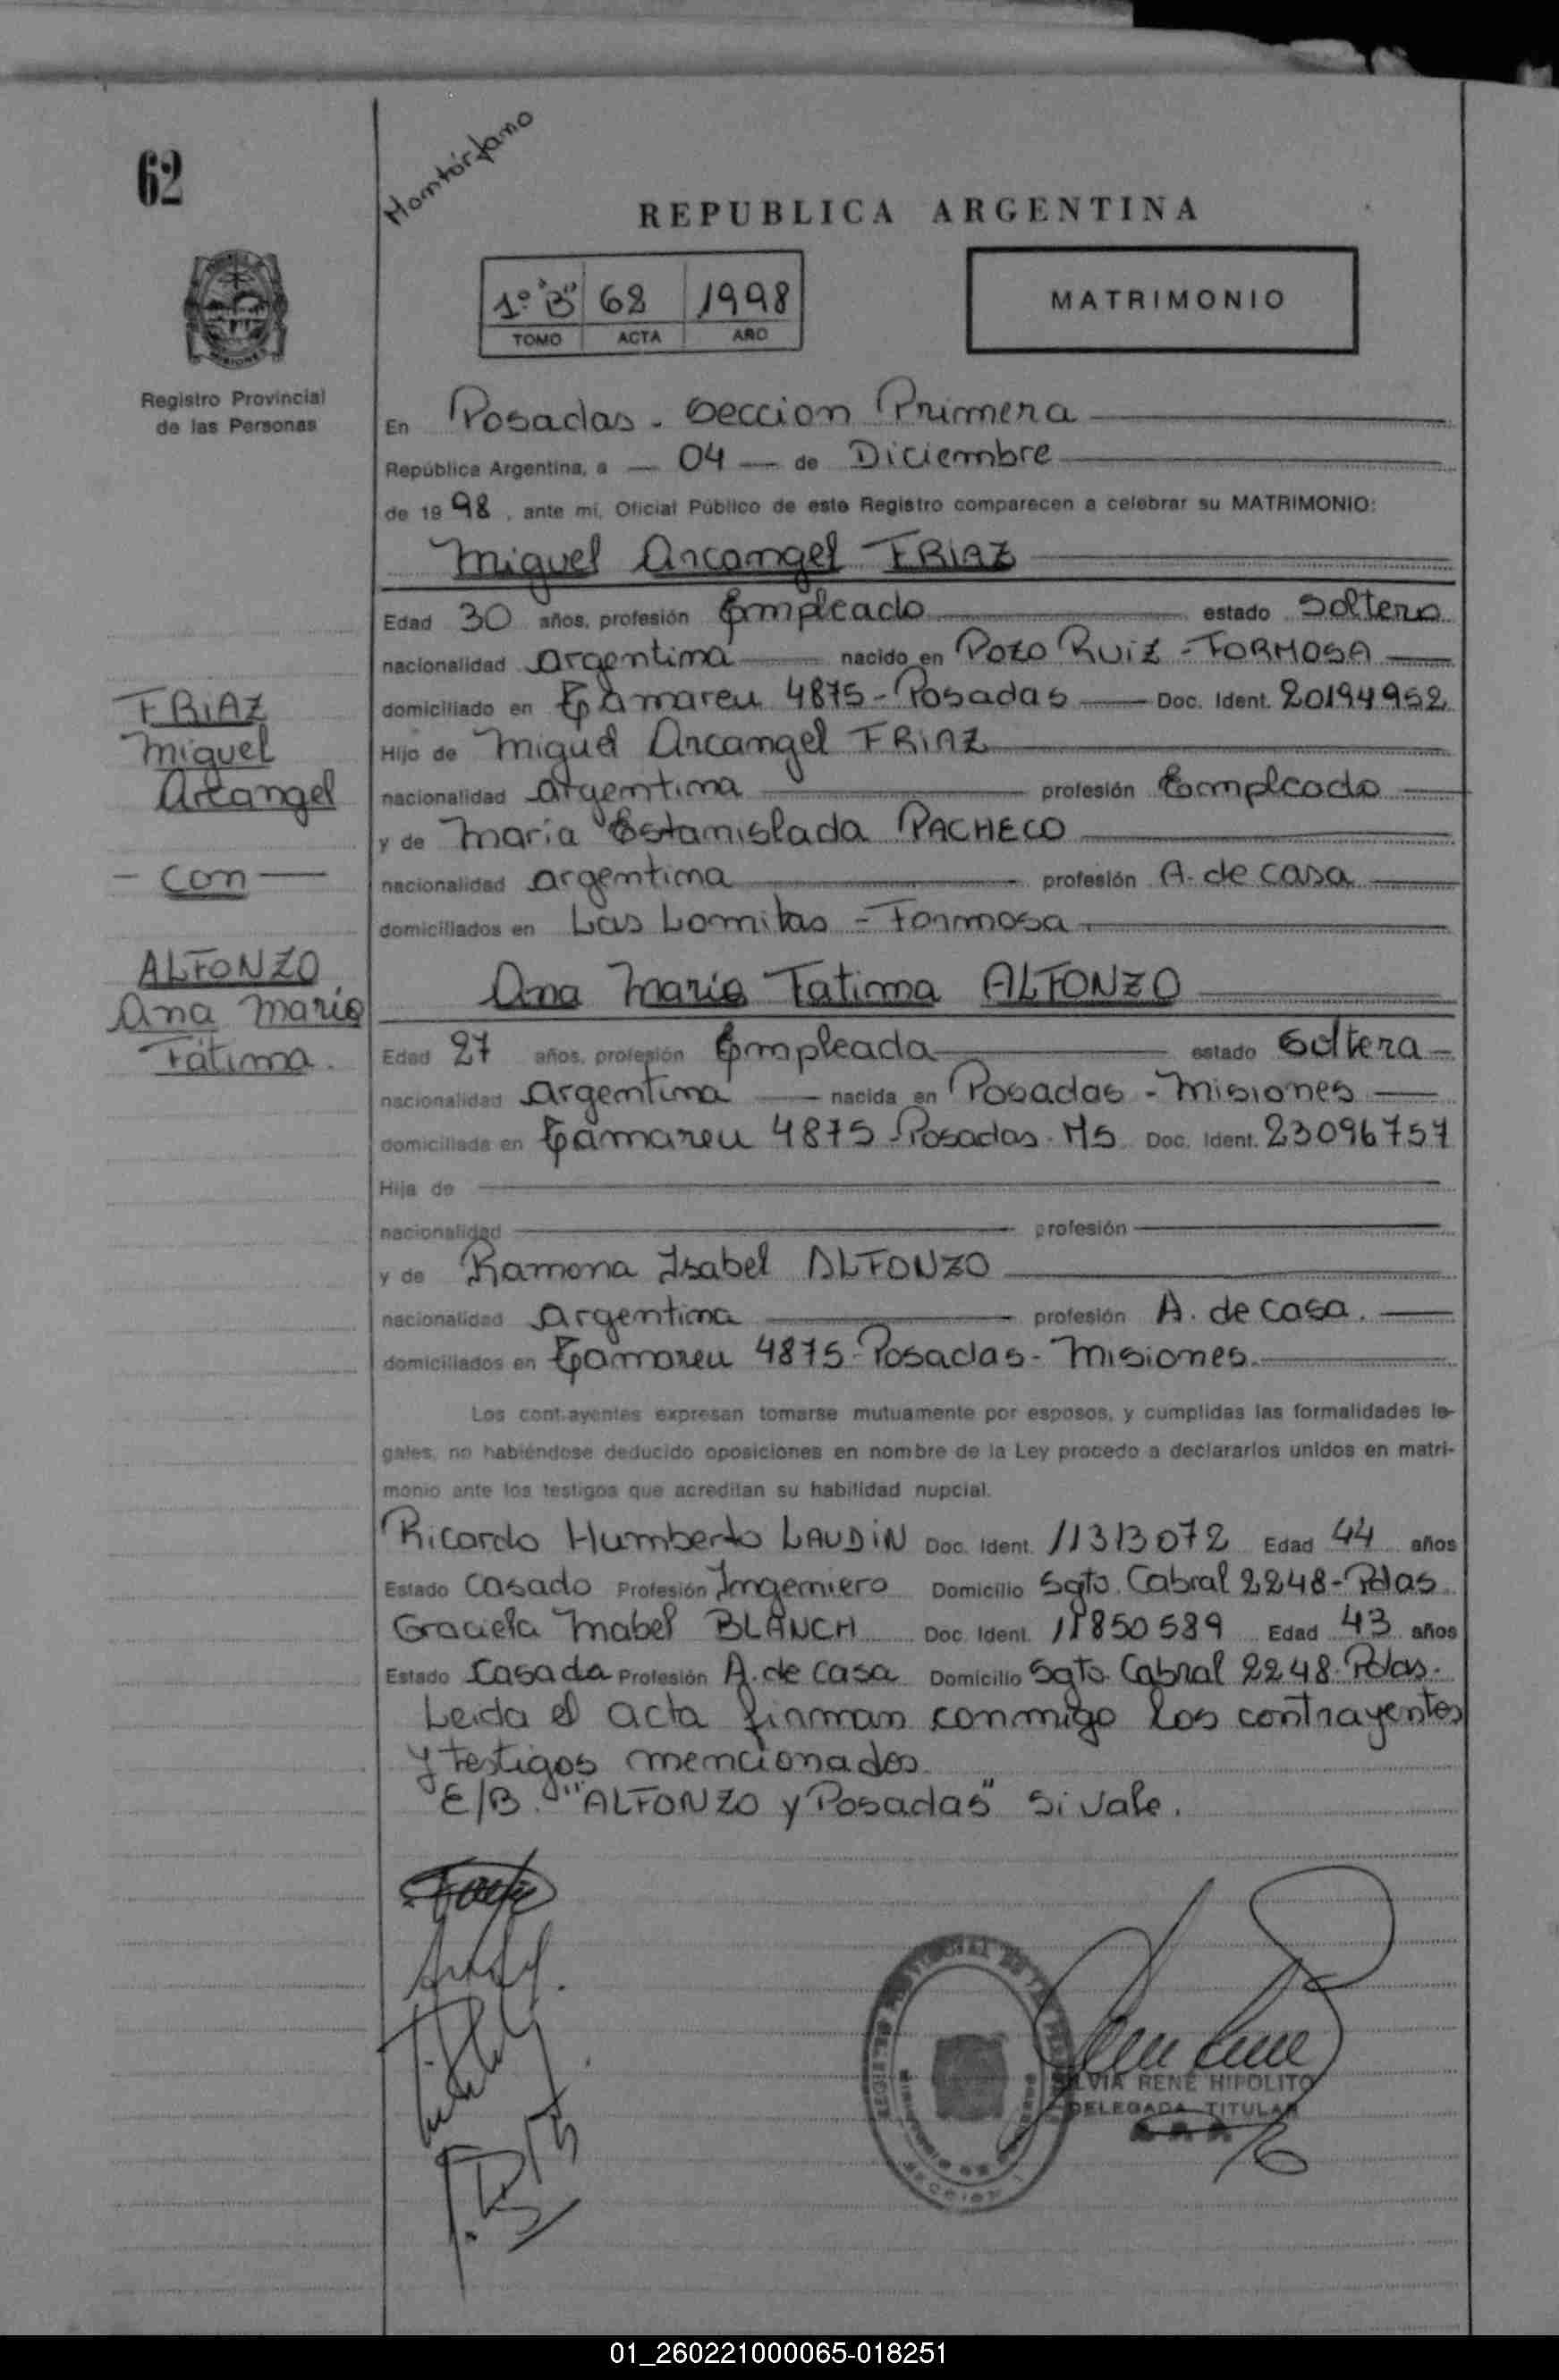 62
Montórfano
REPUBLICA ARGENTINA
1º "B" 62 1998
TOMO ACTA AÑO
MATRIMONIO
Registro Provincial
de las Personas
En Posadas - Seccion Primera
República Argentina, a 04 de Diciembre
de 1998, ante mí, Oficial Público de este Registro comparecen a celebrar su MATRIMONIO:
Miguel Arcangel FRIAZ
Edad 30 años, profesión Empleado estado Soltero
nacionalidad argentina nacido en Pozo Ruiz - FORMOSA
domiciliado en Tamareu 4875 - Posadas Doc. Ident. 20194952
Hijo de Miguel Arcangel FRIAZ
nacionalidad argentina profesión Empleado
y de Maria Estanislada PACHECO
nacionalidad argentina profesión A. de casa
domiciliados en Las Lomitas - Formosa
FRIAZ
Miguel
Arcangel
- con -
ALFONZO
Ana Maria
Fátima.
Ana Maria Fatima ALFONZO
Edad 27 años, profesión Empleada estado Soltera
nacionalidad Argentina nacida en Posadas - Misiones
domiciliada en Tamareu 4875 - Posadas - Ms Doc. Ident. 23096757
Hija de
nacionalidad profesión
y de Ramona Isabel ALFONZO
nacionalidad argentina profesión A. de casa.
domiciliados en Tamareu 4875 - Posadas - Misiones.
Los contrayentes expresan tomarse mutuamente por esposos, y cumplidas las formalidades le-
gales, no habiéndose deducido oposiciones en nombre de la Ley procedo a declararlos unidos en matri-
monio ante los testigos que acreditan su habilidad nupcial.
Ricardo Humberto LAUDIN Doc. Ident. 11313072 Edad 44 años
Estado Casado Profesión Ingeniero Domicilio Sgto. Cabral 2248 - Pdas
Graciela Mabel BLANCH Doc. Ident. 11850589 Edad 43 años
Estado Casada Profesión A. de casa Domicilio Sgto. Cabral 2248 - Pdas.
Leida el acta firman conmigo los contrayentes
y testigos mencionados.
E/B. "ALFONZO y Posadas" Si vale.
SILVIA RENE HIPOLITO
DELEGADA TITULAR
01_260221000065-018251